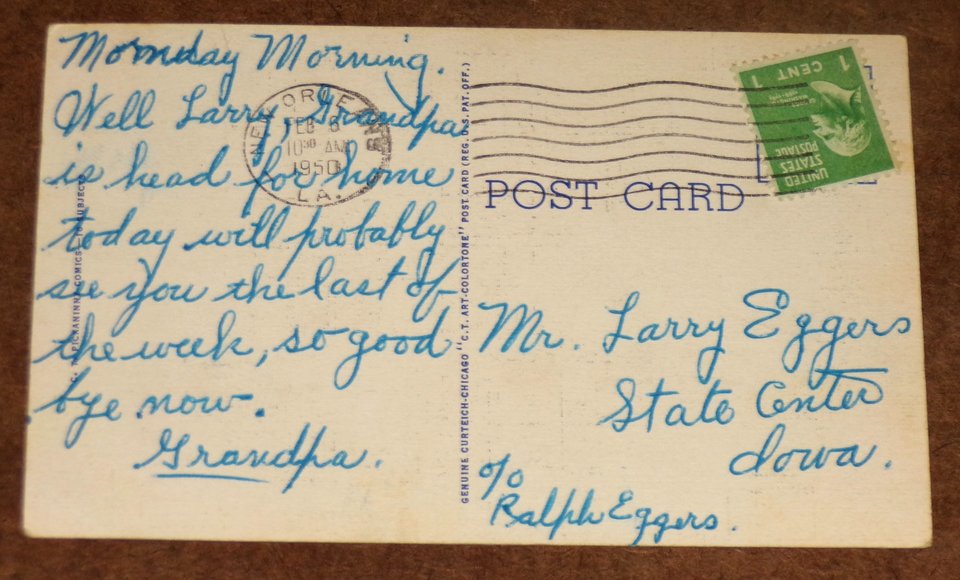 Monday Morning.
Well Larry Grandpa
is head for home
today will probably
see you the last of
the week, so good
bye now.
Grandpa.
NEW ORLE
FEB 6
10 30 AM
1950
LA.
C. T. PICKANINNY COMICS—10 SUBJECTS
GENUINE CURTEICH-CHICAGO "C.T. ART-COLORTONE" POST CARD (REG. U.S. PAT. OFF.)
POST CARD
1 CENT 1
UNITED
STATES
POSTAGE
Mr. Larry Eggers
State Center
Iowa.
c/o
Ralph Eggers.